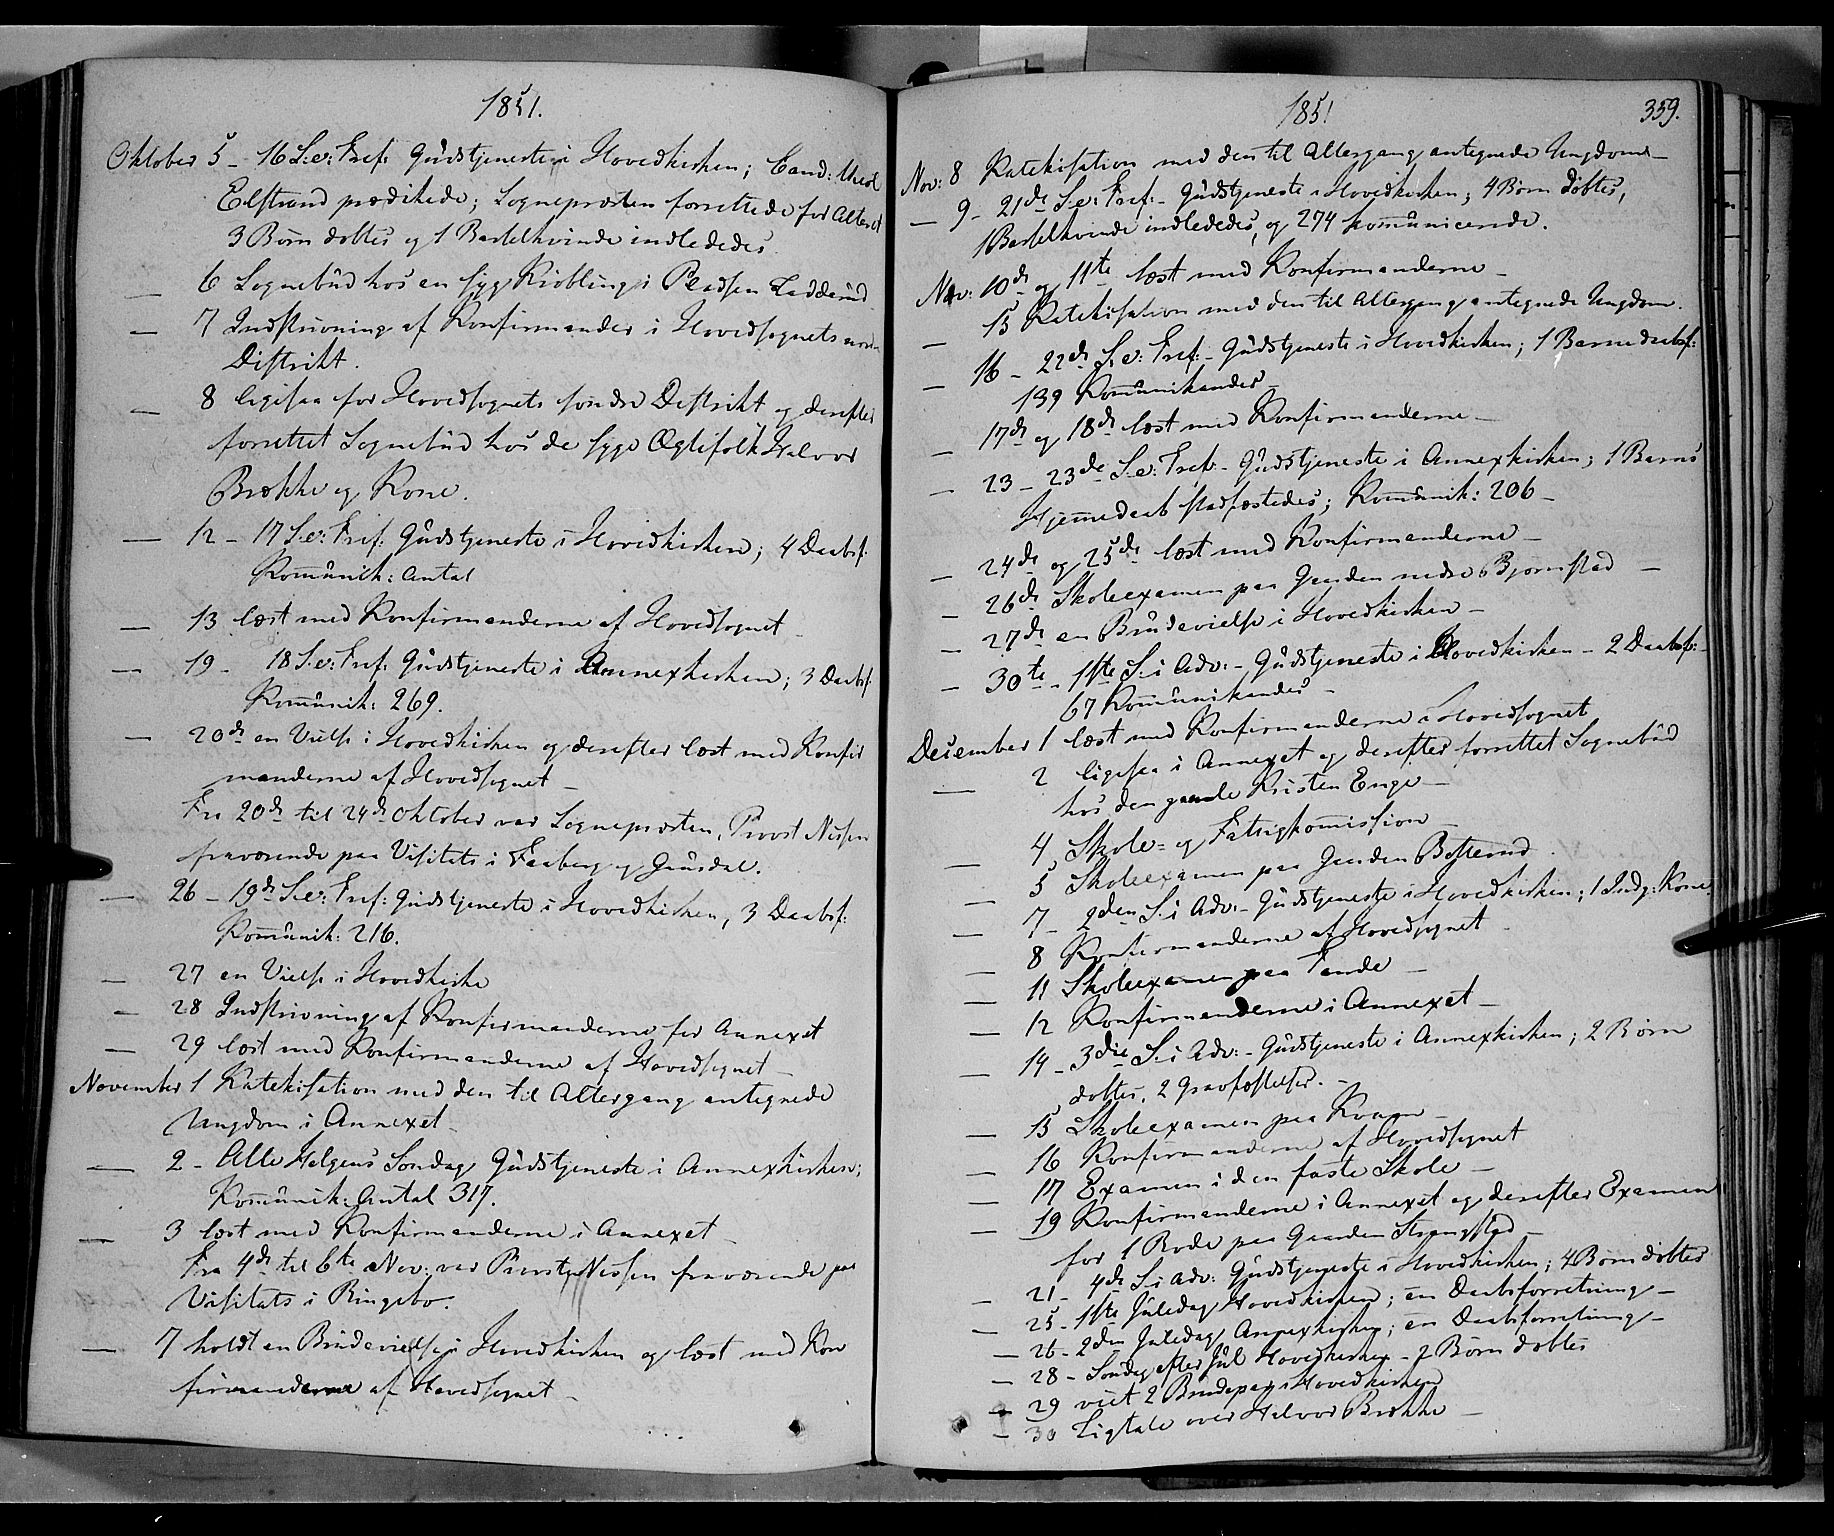 1851.
Oktober 5 – 16 S. e: Tref: Gudstjeneste i Hovedkirken; Cand: theol
Elstrand prædikede; Sognepræsten forrettede for Alteret
3 Børn døbtes og 1 Barselkvinde indlededes.
— 6 Sognebud hos en syg Kiøbling i Pladsen
— 7 Indskrivning af Konfirmander i Hovedsognets
Distrikt.
— 8 ligesaa for Hovedsognets søndre Distrikt og derefter
forrettet Sognebud hos de syge Ægtefolk Halvor
Brække og Kone.
— 12 – 17 S. e: Tref: Gudstjeneste i Hovedkirken; 4 Daabsf:
Kommunik: Antal
— 13 læst med Konfirmanderne af Hovedsognet –
— 19 – 18 S. e: Tref: Gudstjeneste i Annexkirken; 3 Daabsf.
Kommunik: 269.
— 20de en Vielse i Hovedkirken og derefter læst med Konfir
manderne af Hovedsognet –
Fra 20de til 24de Oktober var Sognepræsten, Provst Nissen
fraværende paa Visitats i Faaberg og Gausdal.
— 26 – 19de S. e: Tref: Gudstjeneste i Hovedkirken, 3 Daabsf:
Kommunik: 216.
— 27 en Vielse i Hovedkirke
— 28 Indskrivning af Konfirmanderne for Annexet
— 29 læst med Konfirmanderne af Hovedsognet –
November 1 Katekisation med den til Altergang antegnede
Ungdom i Annexet –
— 2 – Alle Helgens Søndag Gudstjeneste i Annexkirken;
Kommunik: Antal 317.
— 3 læst med Konfirmanderne i Annexet –
Fra 4de til 6te Nov: var Provst Nissen fraværende paa
Visitats i Ringebo.
— 7 holdt en Brudevielse i Hovedkirken og læst med Kon
firmanderne af Hovedsognet –
1851
359.
Nov: 8 Katekisation med den til Altergang antegnede Ungdom –
— 9 – 21de S. e: Tref: – Gudstjeneste i Hovedkirken; 4 Børn døbtes,
1 Barselkvinde indlededes, og 274 kommunicerede.
Nov: 10de og 11te læst med Konfirmanderne –
— 15 Katekisation med den til Altergang antegnede Ungdom.
— 16 – 22de S. e: Tref: – Gudstjeneste i Hovedkirken; 1 Barnedaabsf:
139 Kommunikander –
— 17de og 18de læst med Konfirmanderne –
— 23 – 23de S. e: Tref – Gudstjeneste i Annexkirken; 1 Barns
Hjemmedaab stadfæstedes; Kommunik: 206 –
— 24de og 25de læst med Konfirmanderne –
— 26de Skoleexamen paa Gaarden nedre Bjørnstad –
— 27de en Brudevielse i Hovedkirken –
— 30te – 1ste S. i Adv: – Gudstjeneste i Hovedkirken – 2 Daabsf: –
67 Kommunikander –
December 1 læst med Konfirmanderne i Hovedsognet
— 2 ligesaa i Annexet og derefter forrettet Sognebud
hos den gamle Kristen Enge –
— 4, Skole- og Fattigkommission –
— 5 Skoleexamen paa Gaarden
— 7 – 2den S. i Adv: – Gudstjeneste i Hovedkirken; 1 Indg: Kone
— 8 Konfirmanderne af Hovedsognet –
— 11 Skoleexamen paa Tande –
— 12 Konfirmanderne i Annexet –
— 14 – 3die S. i Adv: – Gudstjeneste i Annexkirken; 2 Børn
døbtes, 2 Gravfæstelser. –
— 15 Skoleexamen paa Kvarn –
— 16 Konfirmanderne af Hovedsognet
— 17 Examen i den faste Skole –
— 19 Konfirmanderne i Annexet og derefter Examen
for 1 Rode paa Gaarden –
— 21 – 4de S. i Adv: Gudstjeneste i Hovedkirken; 4 Børn døbtes
— 25 – 1ste Juledag Hovedkirken; en Daabsforretning –
— 26 – 2den Juledag Annexkirken; en Daabsforretning –
— 28 – Søndag efter Jul Hovedkirken – 2 Børn døbtes
— 29 viet 2 Brudepar i Hovedkirken
— 30 Ligtale over Halvor Brække –